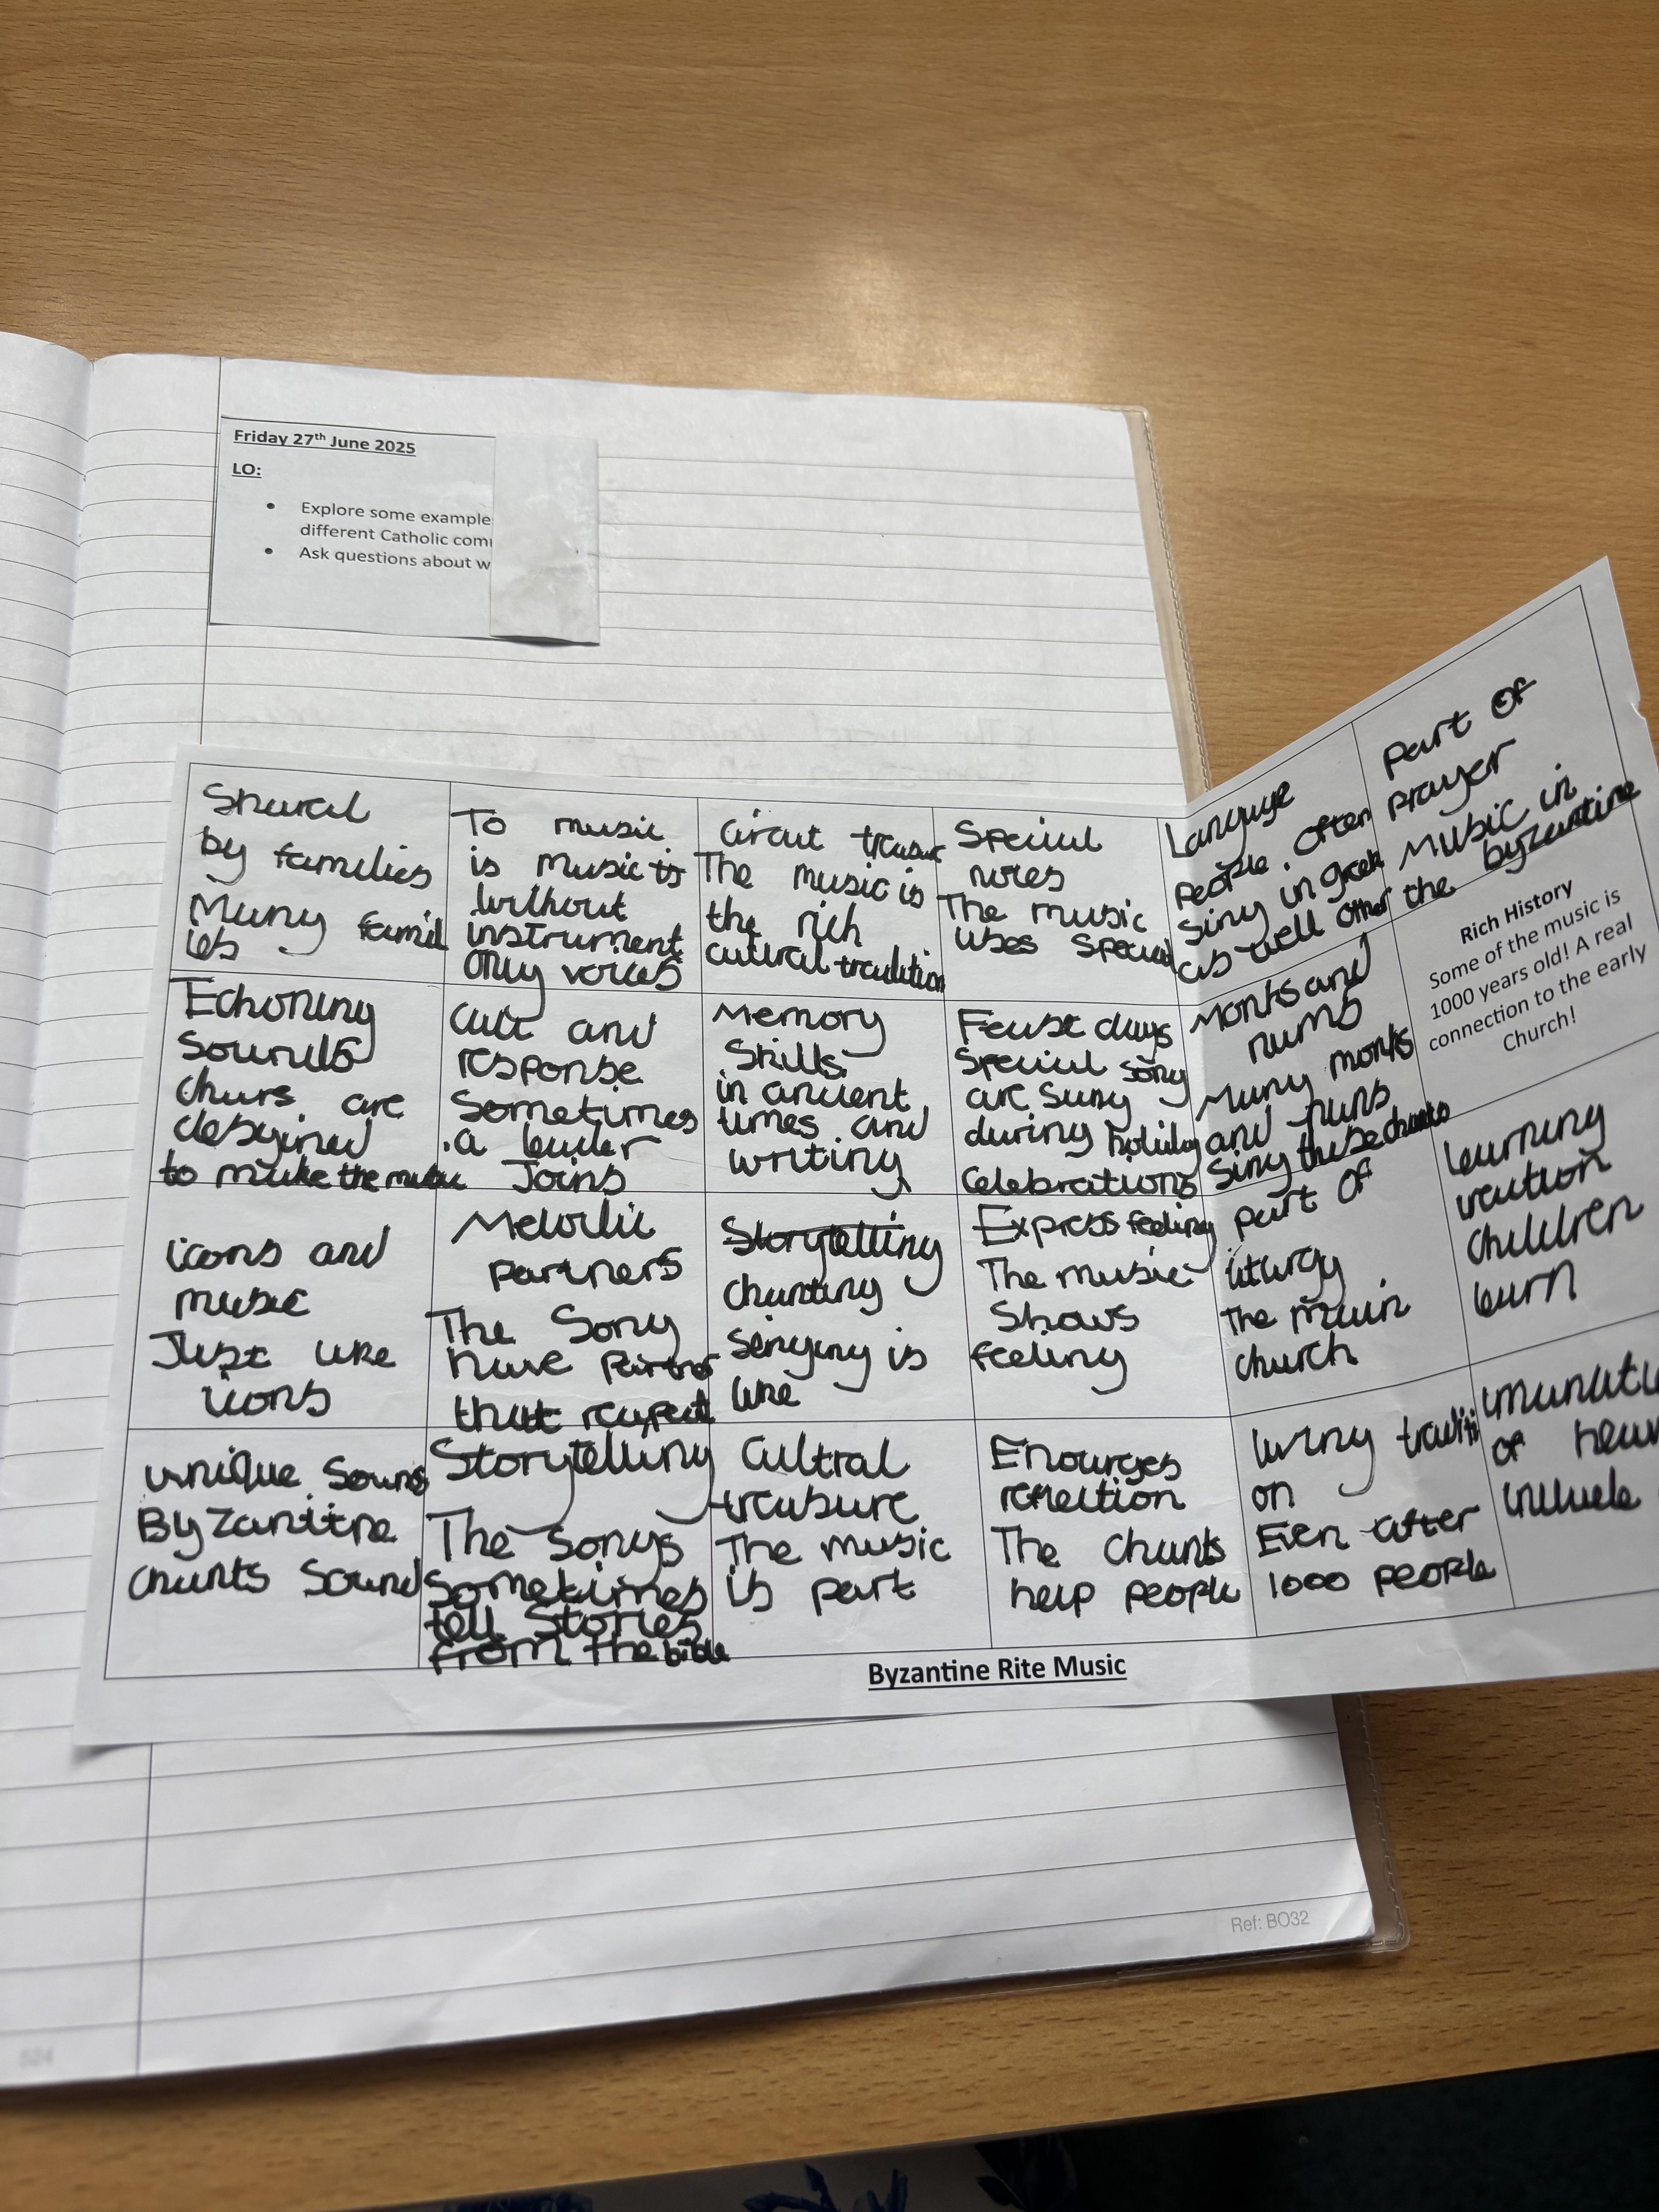 Friday 27th June 2025
LO:
Explore some example
different Catholic com
Ask questions about w
Shared
by families
Many famil
ies
To music
is music is
without
instrument
only voices
The music is
the rich
cultural tradition
Special
notes
The music
uses special
Language
people often
sing in greek
as well other
part of
prayer
Music in
the byzantine
Echoning
Sounds
churs are
desgined
to make the music
call and
response
Sometimes
a leader
Joins
Memory
Skills
in ancient
times and
writing
Feast days
Special song
are sung
during holiday
Celebrations
Monks and
nuns
Many monks
and nuns
Sing these chants
Rich History
Some of the music is
1000 years old! A real
connection to the early
Church!
icons and
music
Just like
icons
Melodic
partners
The Song
have
that repeat
Storytelling
chanting
singing is
like
Express feeling
The music
Shows
feeling
part of
liturgy
The main
church
learning
children
learn
unique Sound
Byzantine
chants Sound
Storytelling
The Songs
Sometimes
tell Stories
from the bible
Cultral
treasure
The music
is part
Enourges
reflection
The chants
help people
living traditi
on
Even after
1000 people
of
include
Byzantine Rite Music
Ref: BO32